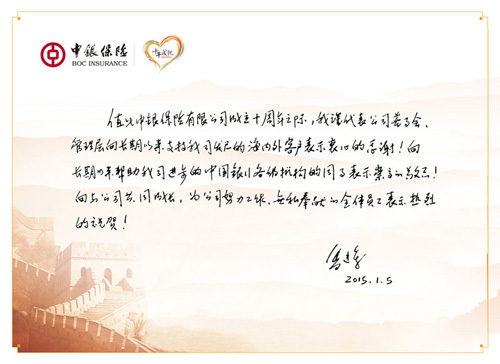 中银保险
BOC INSURANCE
值此中银保险有限公司成立十周年之际,我谨代表公司董事会、
管理层向长期以来支持我司发展的海内外客户表示衷心的感谢!向
长期以来帮助我司进步的中国银行各级机构的同事表示崇高的敬意!
向与公司共同成长,为公司努力工作、无私奉献的全体员工表示热烈
的祝贺!
2015.1.5